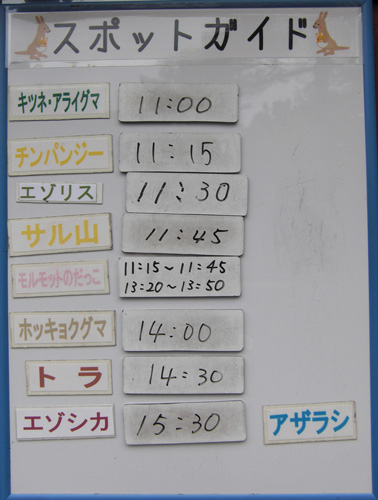 スポットガイド
キツネ・アライグマ 11:00
チンパンジー 11:15
エゾリス 11:30
サル山 11:45
モルモットのだっこ 11:15〜11:45
13:20〜13:50
ホッキョクグマ 14:00
トラ 14:30
エゾシカ 15:30
アザラシ